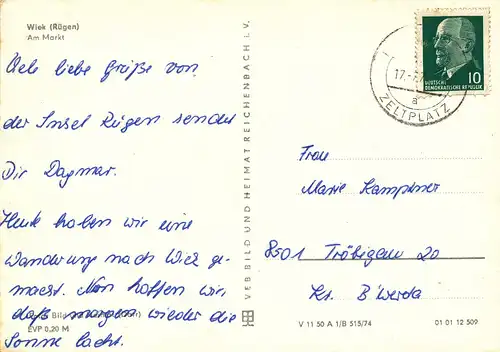 Wiek (Rügen)
Am Markt
Viele liebe Grüße von
der Insel Rügen sendet
Dir Dagmar.
Heute haben wir eine
Wanderung nach Wiek ge-
macht. Nun hoffen wir
daß morgen wieder die
Sonne lacht.
Bild
EVP 0,20 M
VEB BILD UND HEIMAT REICHENBACH I. V.
17.
a
ZELTPLATZ
10
DEUTSCHE
DEMOKRATISCHE REPUBLIK
Frau
Marie
8501 Tröbigau 20
Kr. B'werda
V 11 50 A 1/B 515/74
01 01 12 509